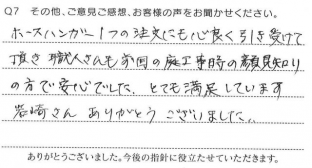 Q7 その他、ご意見ご感想、お客様の声をお聞かせください。
ホースハンガー1つの注文にも心良く引き受けて
頂き 職人さんも前回の庭工事時の顔見知り
の方で安心でした。とても満足しています
岩崎さん ありがとう ございました。
ありがとうございました。今後の指針に役立たせていただきます。